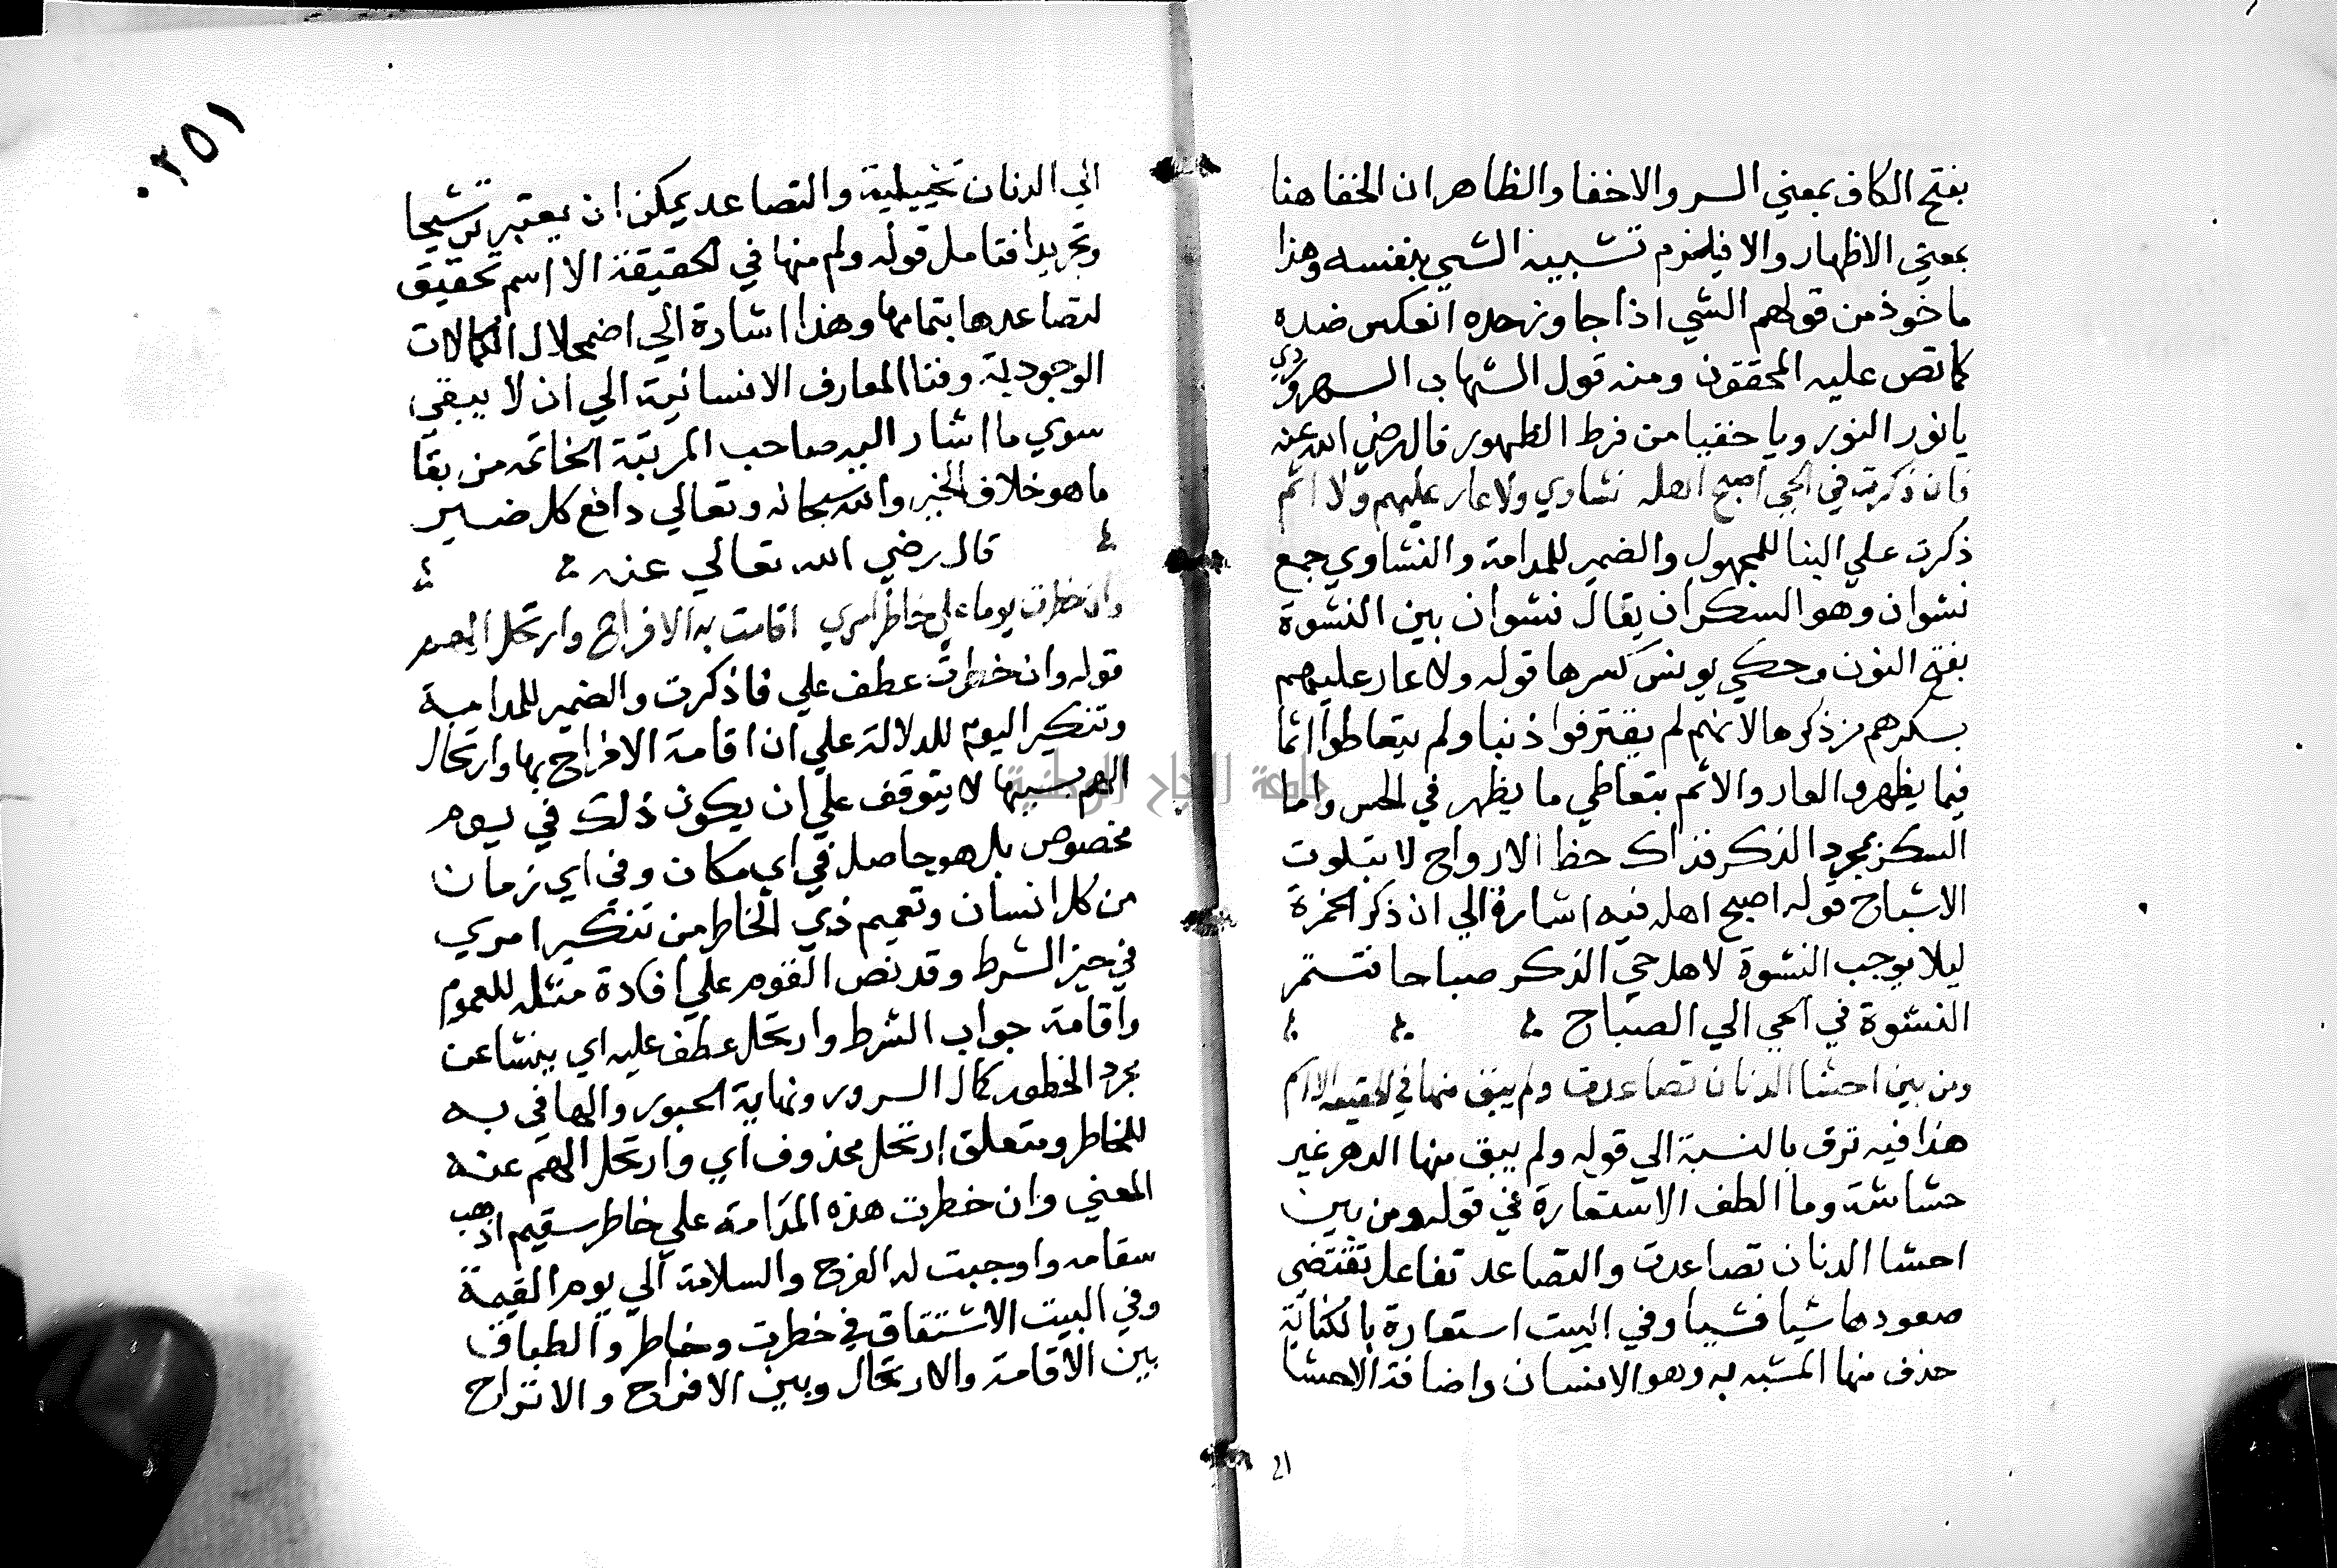 بفتح الكاف بمعني الستر والاخفا والظاهر ان الخفا هنا
بمعني الاظهار والا فيلزم تشبيه الشي بنفسه وهذا
ماخوذ من قولهم الشي اذا جاوز حده انعكس ضده
كما نص عليه المحققون ومنه قول الشهاب السهروردي
يا نور النور ويا خفيا من فرط الظهور قال رضي الله عنه
فان ذكرت في الحي اصبح اهله نشاوي ولا عار عليهم ولا اثم
ذكرت علي البنا للمجهول والضمير للمدامة والنشاوي جمع
نشوان وهو السكران يقال نشوان بين النشوة
بفتح النون وحكي يونس كسرها قوله ولا عار عليهم
بسكرهم من ذكرها لانهم لم يقترفوا ذنبا ولم يتعاطوا اثما
فيما يظهر والعار والاثم بتعاطي ما يظهر في الحس واما
السكر بمجرد الذكر فذاك حظ الارواح لا بتلوت
الاشباح قوله اصبح اهله فيه اشارة الي ان ذكر الخمرة
ليلا يوجب النشوة لاهل حي الذكر صباحا فتستمر
النشوة في الحي الي الصباح
ومن بين احشا الدنان تصاعدت ولم يبق منها في الحقيقه الا اسم
هذا فيه ترق بالنسبة الي قوله ولم يبق منها الدهر غير
حشاشة وما الطف الاستعارة في قوله ومن بين
احشا الدنان تصاعدت والتصاعد تفاعل تقتضي
صعودها شيا فشيا وفي البيت استعارة بالكناية
حذف منها المشبه به وهو الانسان واضافة الاحشا
الي
٢٥١
الي الدنان تخييلية والتصاعد يمكن ان يعتبر ترشيحا
وتجريدا فتامل قوله ولم منها في الحقيقة الا اسم تحقيق
لتصاعدها بتمامها وهذا اشارة الي اضمحلال الكمالات
الوجودية وفنا المعارف الانسانية الي ان لا يبقي
سوي ما اشار اليه صاحب المرتبة الخاتمه من بقا
ما هو خلاف الخبر والله سبحانه وتعالي دافع كل ضير
قال رضي الله تعالي عنه
وان خطرت يوما علي خاطر امري اقامت به الافراح وارتحل الهم
قوله وان خطرت عطف علي فاذكرت والضمير للمدامة
وتنكير اليوم للدلالة علي ان اقامة الافراح بها وارتحال
الهم بسببها لا يتوقف علي ان يكون ذلك في يوم
مخصوص بل هو حاصل في اي مكان وفي اي زمان
من كل انسان وتعميم ذي الخاطر من تنكير امري
في حيز الشرط وقد نص القوم علي افادة مثله للعموم
واقامة جواب الشرط وارتحل عطف عليه اي ينشا عن
مجرد الخطور كمال السرور ونهاية الحبور والها في به
للخاطر ومتعلق ارتحل محذوف اي وارتحل الهم عنه
المعني وان خطرت هذه المدامة علي خاطر سقيم اذهب
سقامه واوجبت له الفرح والسلامة الي يوم القيمة
وفي البيت الاشتقاق في خطرت وخاطر والطباق
بين الاقامة والارتحال وبين الافراح والاتراح
جامعة النجاح الوطنية